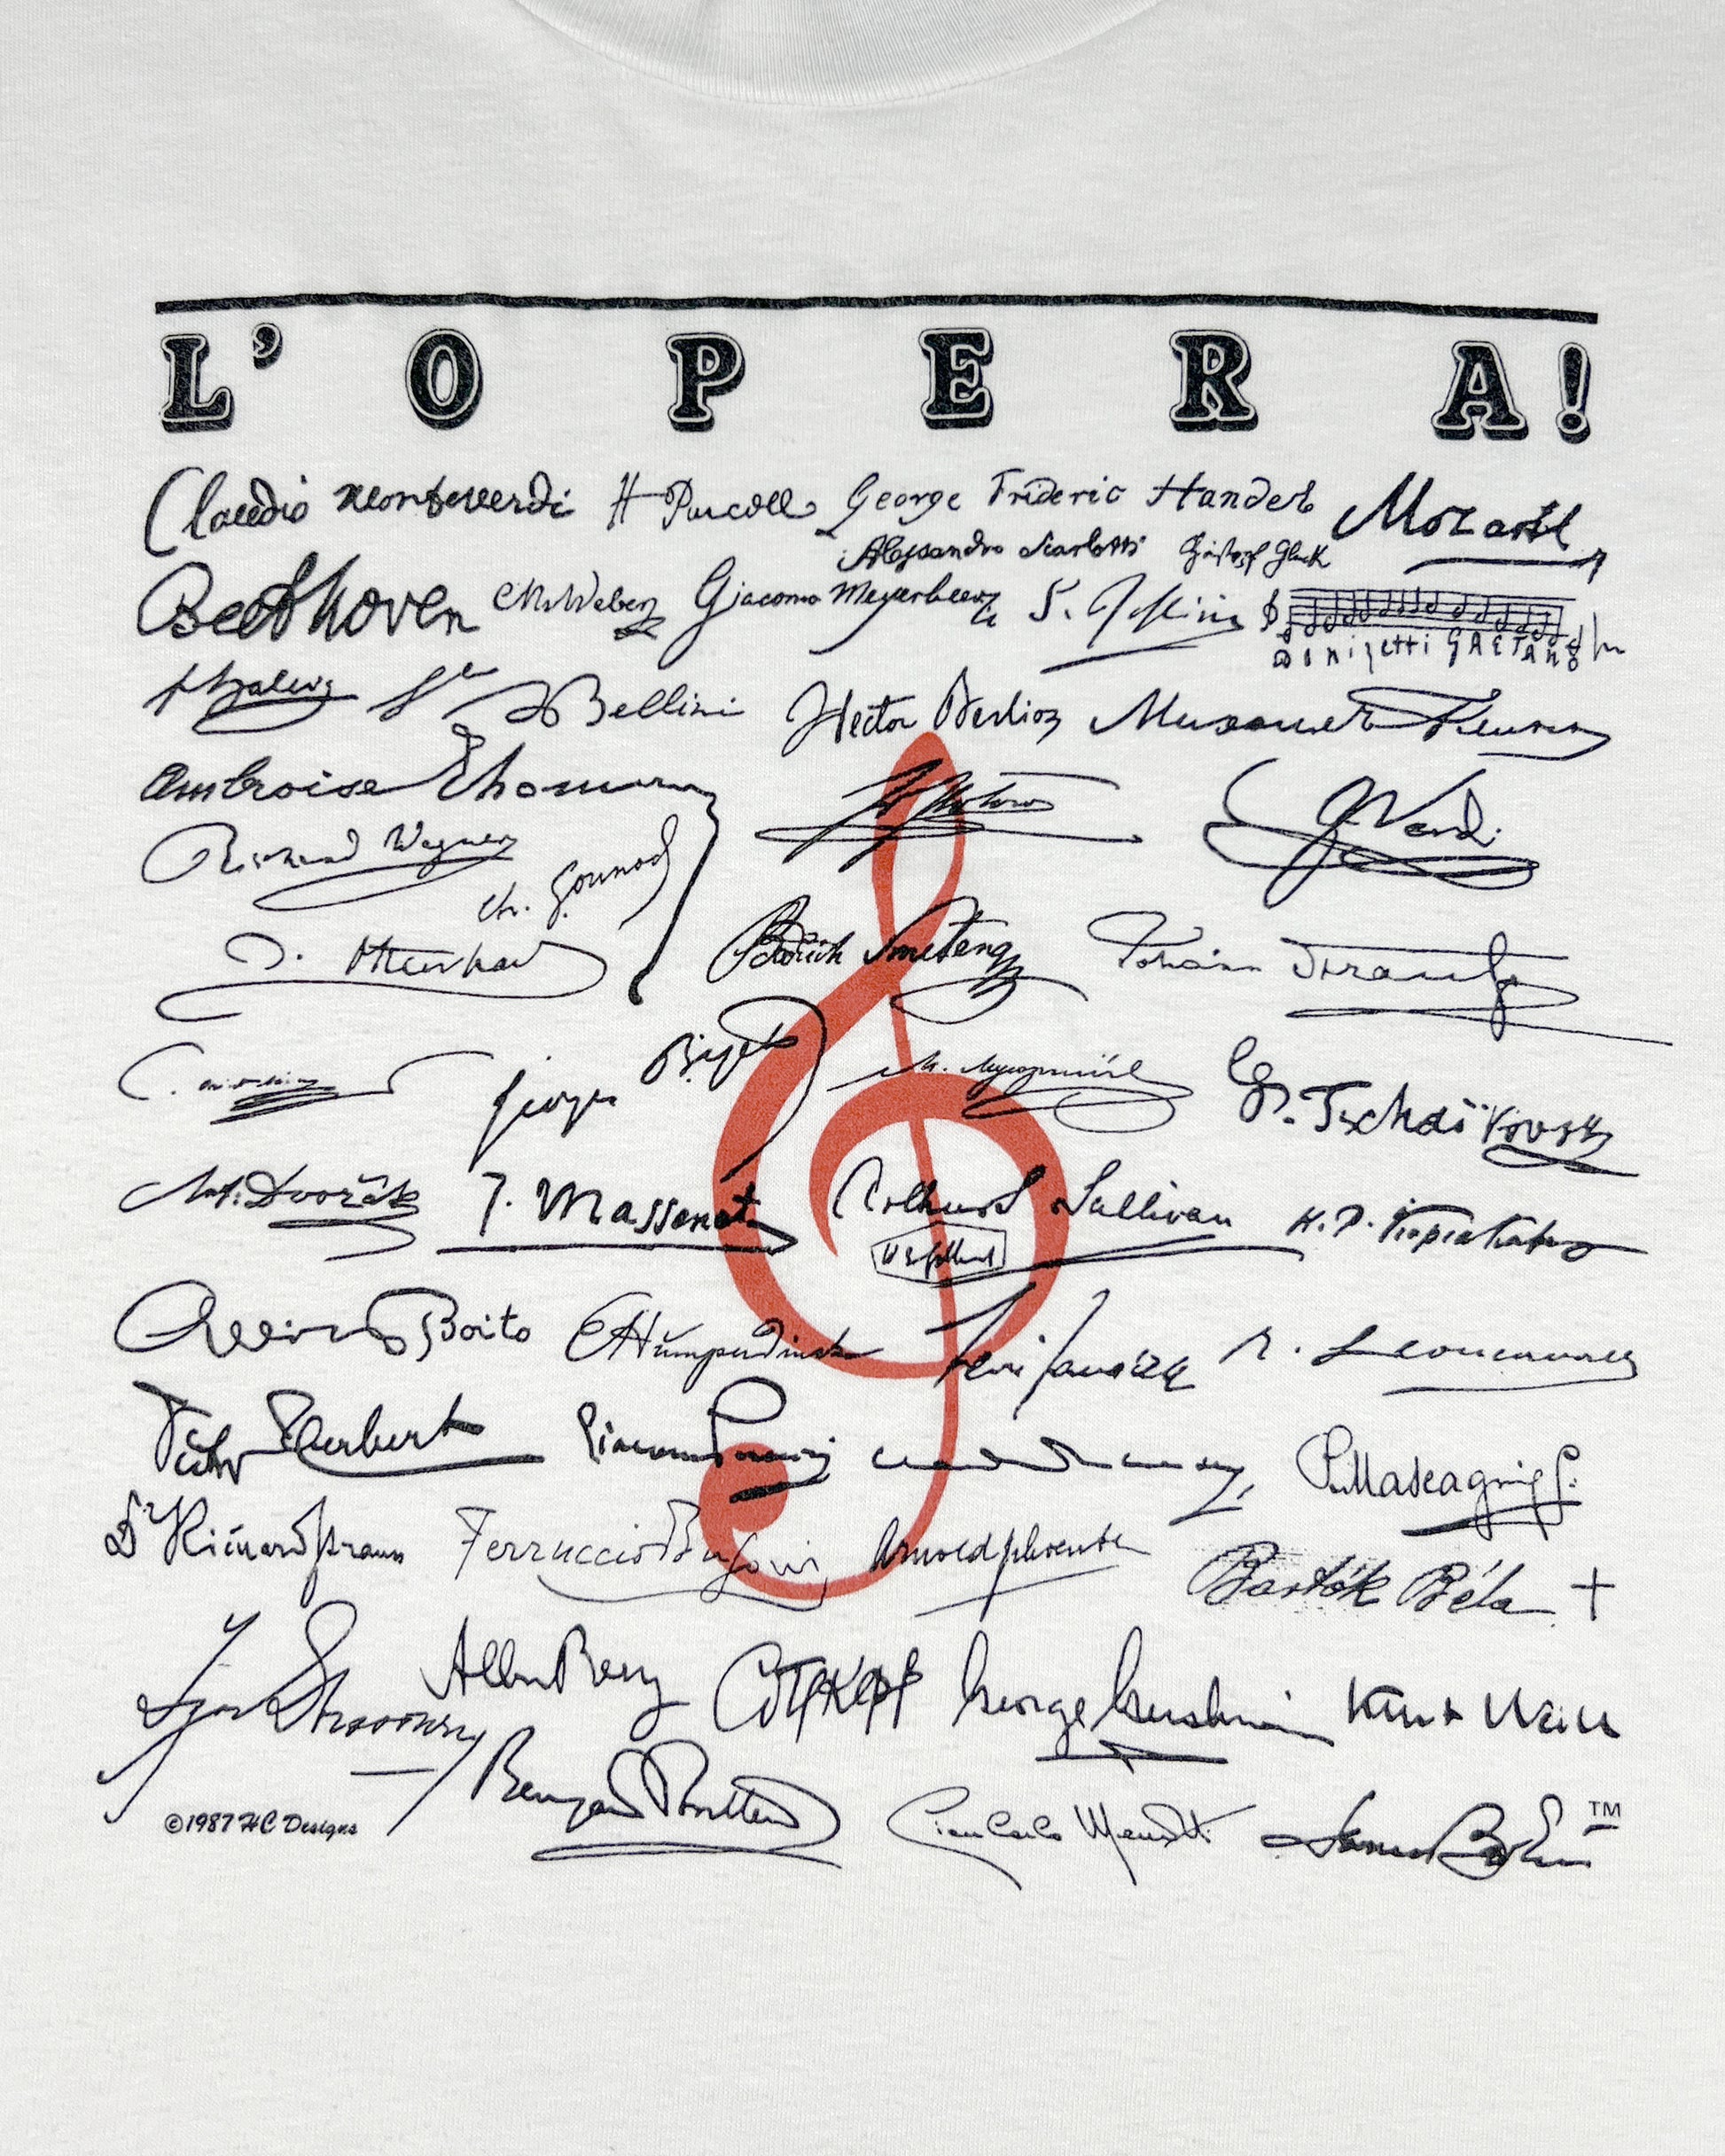 L'OPERA!
Claudio Monteverdi H Purcell George Frideric Handel Mozart
Alessandro Scarlatti Christoph Gluck
Beethoven CMvWeber Giacomo Meyerbeer G. Rossini
Donizetti GAETANO
FHalévy Bellini Hector Berlioz
Ambroise Thomas GVerdi
Richard Wagner
Ch. Gounod
J. Offenbach Bedřich Smetana Johann Strauss
Georges Bizet М. Мусоргскій P. Tschaïkovsky
Ant. Dvořák J. Massenet Arthur Sullivan
WSGilbert
Arrigo Boito EHumperdinck Leoš Janáček R. Leoncavallo
Victor Herbert Giacomo Puccini Claude Debussy P. Mascagni
Dr Richard Strauss Ferruccio Busoni Arnold Schoenberg Bartók Béla
Igor Stravinsky Alban Berg СПРКФВ George Gershwin Kurt Weill
Benjamin Britten Gian Carlo Menotti Samuel Barber TM
©1987 HC Designs